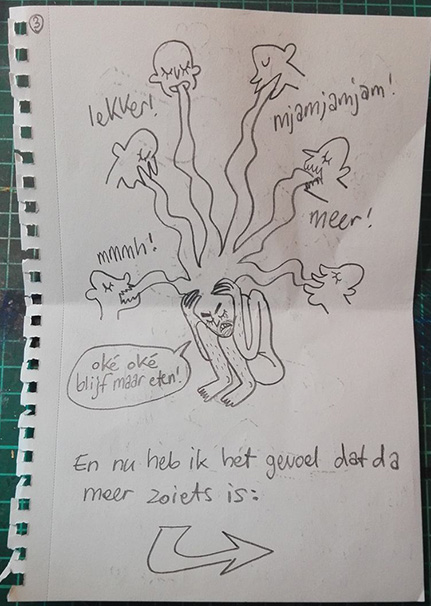 3
lekker!
mjamjamjam!
meer!
mmmh!
oké oké
blijf maar eten!
En nu heb ik het gevoel dat da
meer zoiets is: